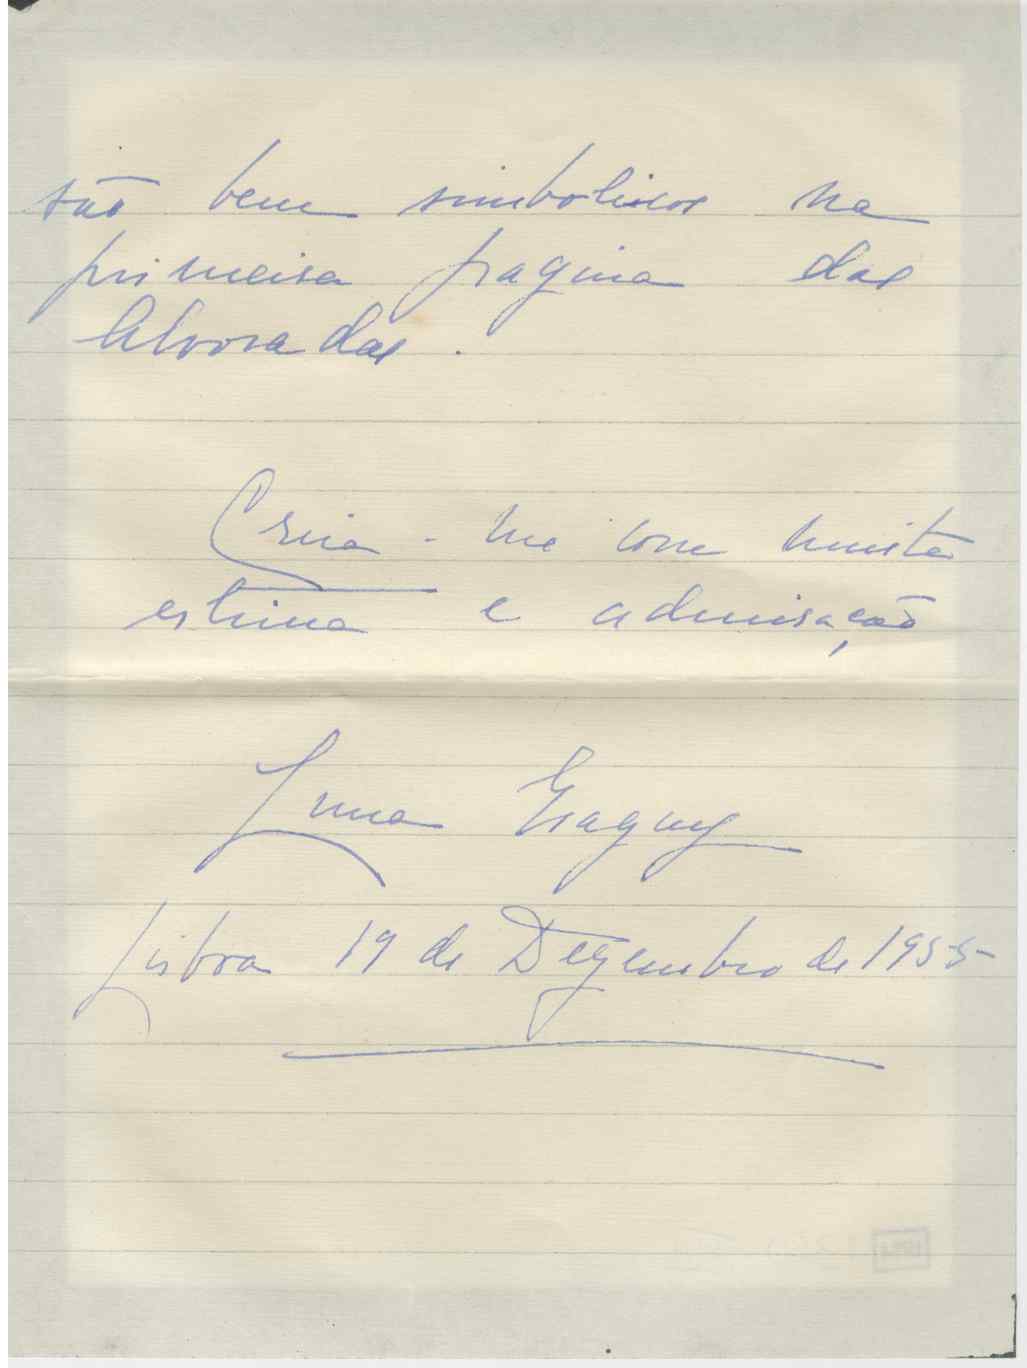 são bem simbolicos na
primeira pagina das
Alvoradas.
Creia-me com muita
estima e admiração
Lisboa 19 de Dezembro de 1955